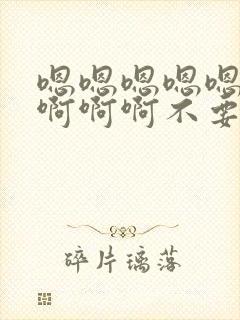 嗯嗯嗯嗯嗯
啊啊啊不要
碎片璃落